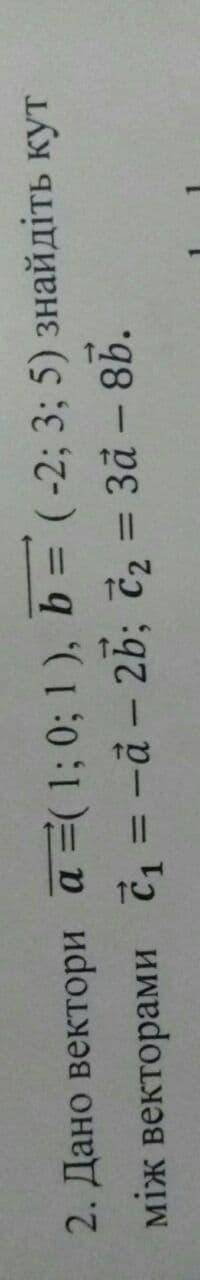 2. Дано вектори a⃗ =( 1; 0; 1 ), b⃗ = ( -2; 3; 5) знайдіть кут
між векторами c⃗₁ = −a⃗ − 2b⃗; c⃗₂ = 3a⃗ − 8b⃗.